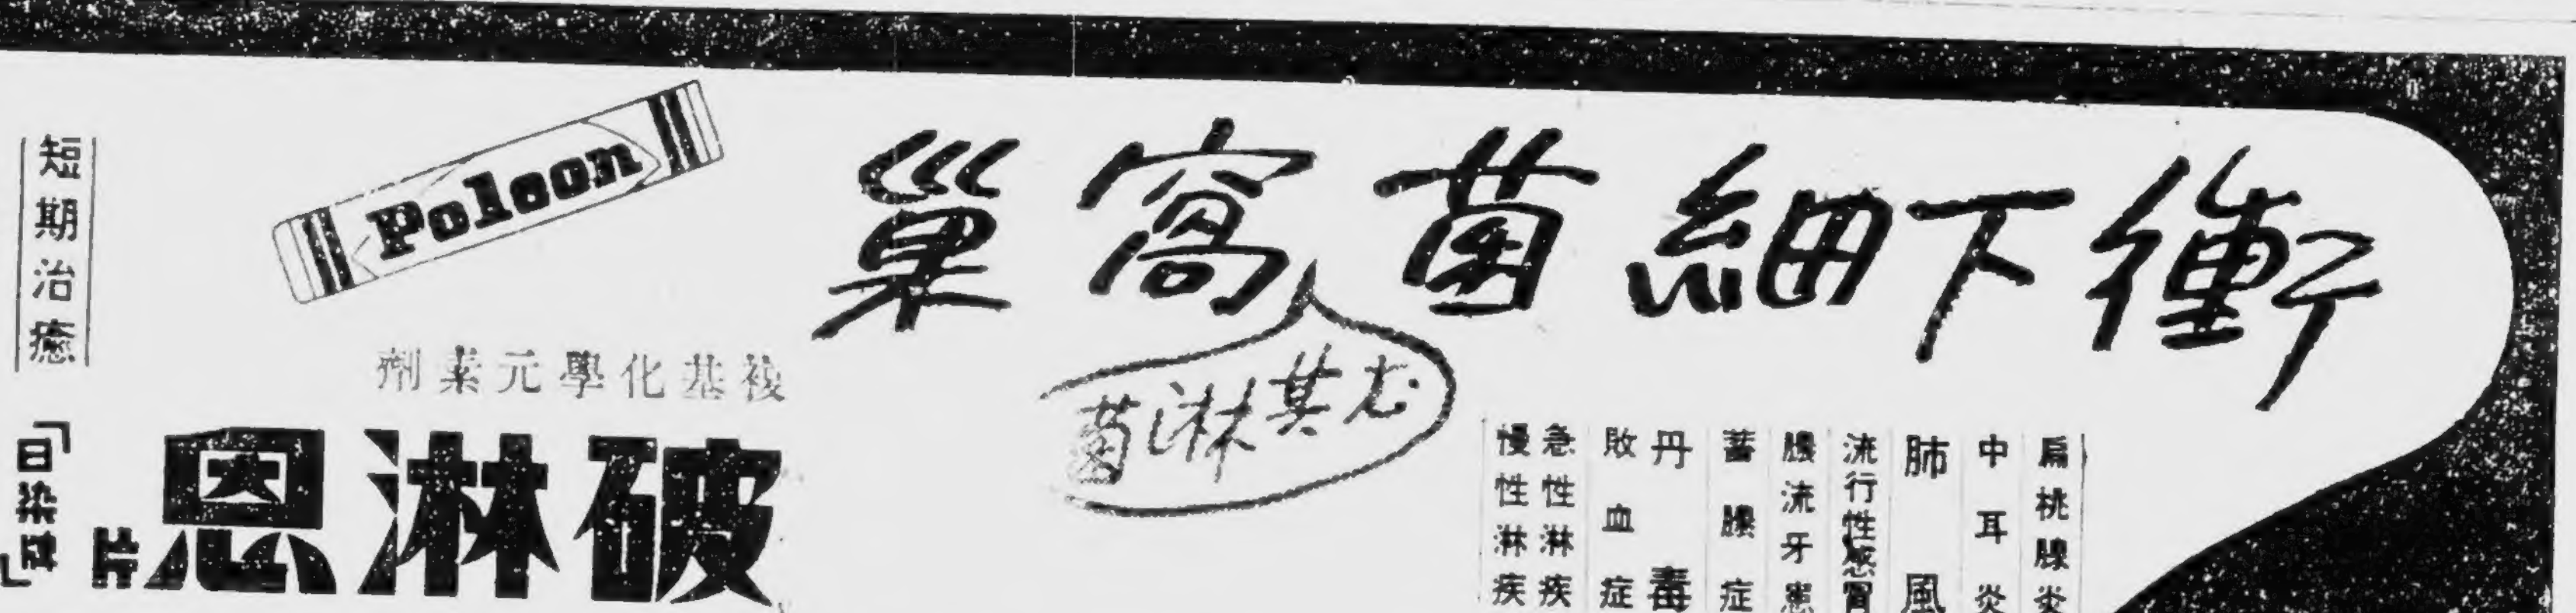 衝下細菌窩巢
尤其淋菌
扁桃腺炎
中耳炎
肺風
流行性感冒
膿流牙患
蓄膿症
丹毒
敗血症
急性淋疾
慢性淋疾
Poleon
複基化學元素劑
破淋恩片
短期治癒
「日染碇」